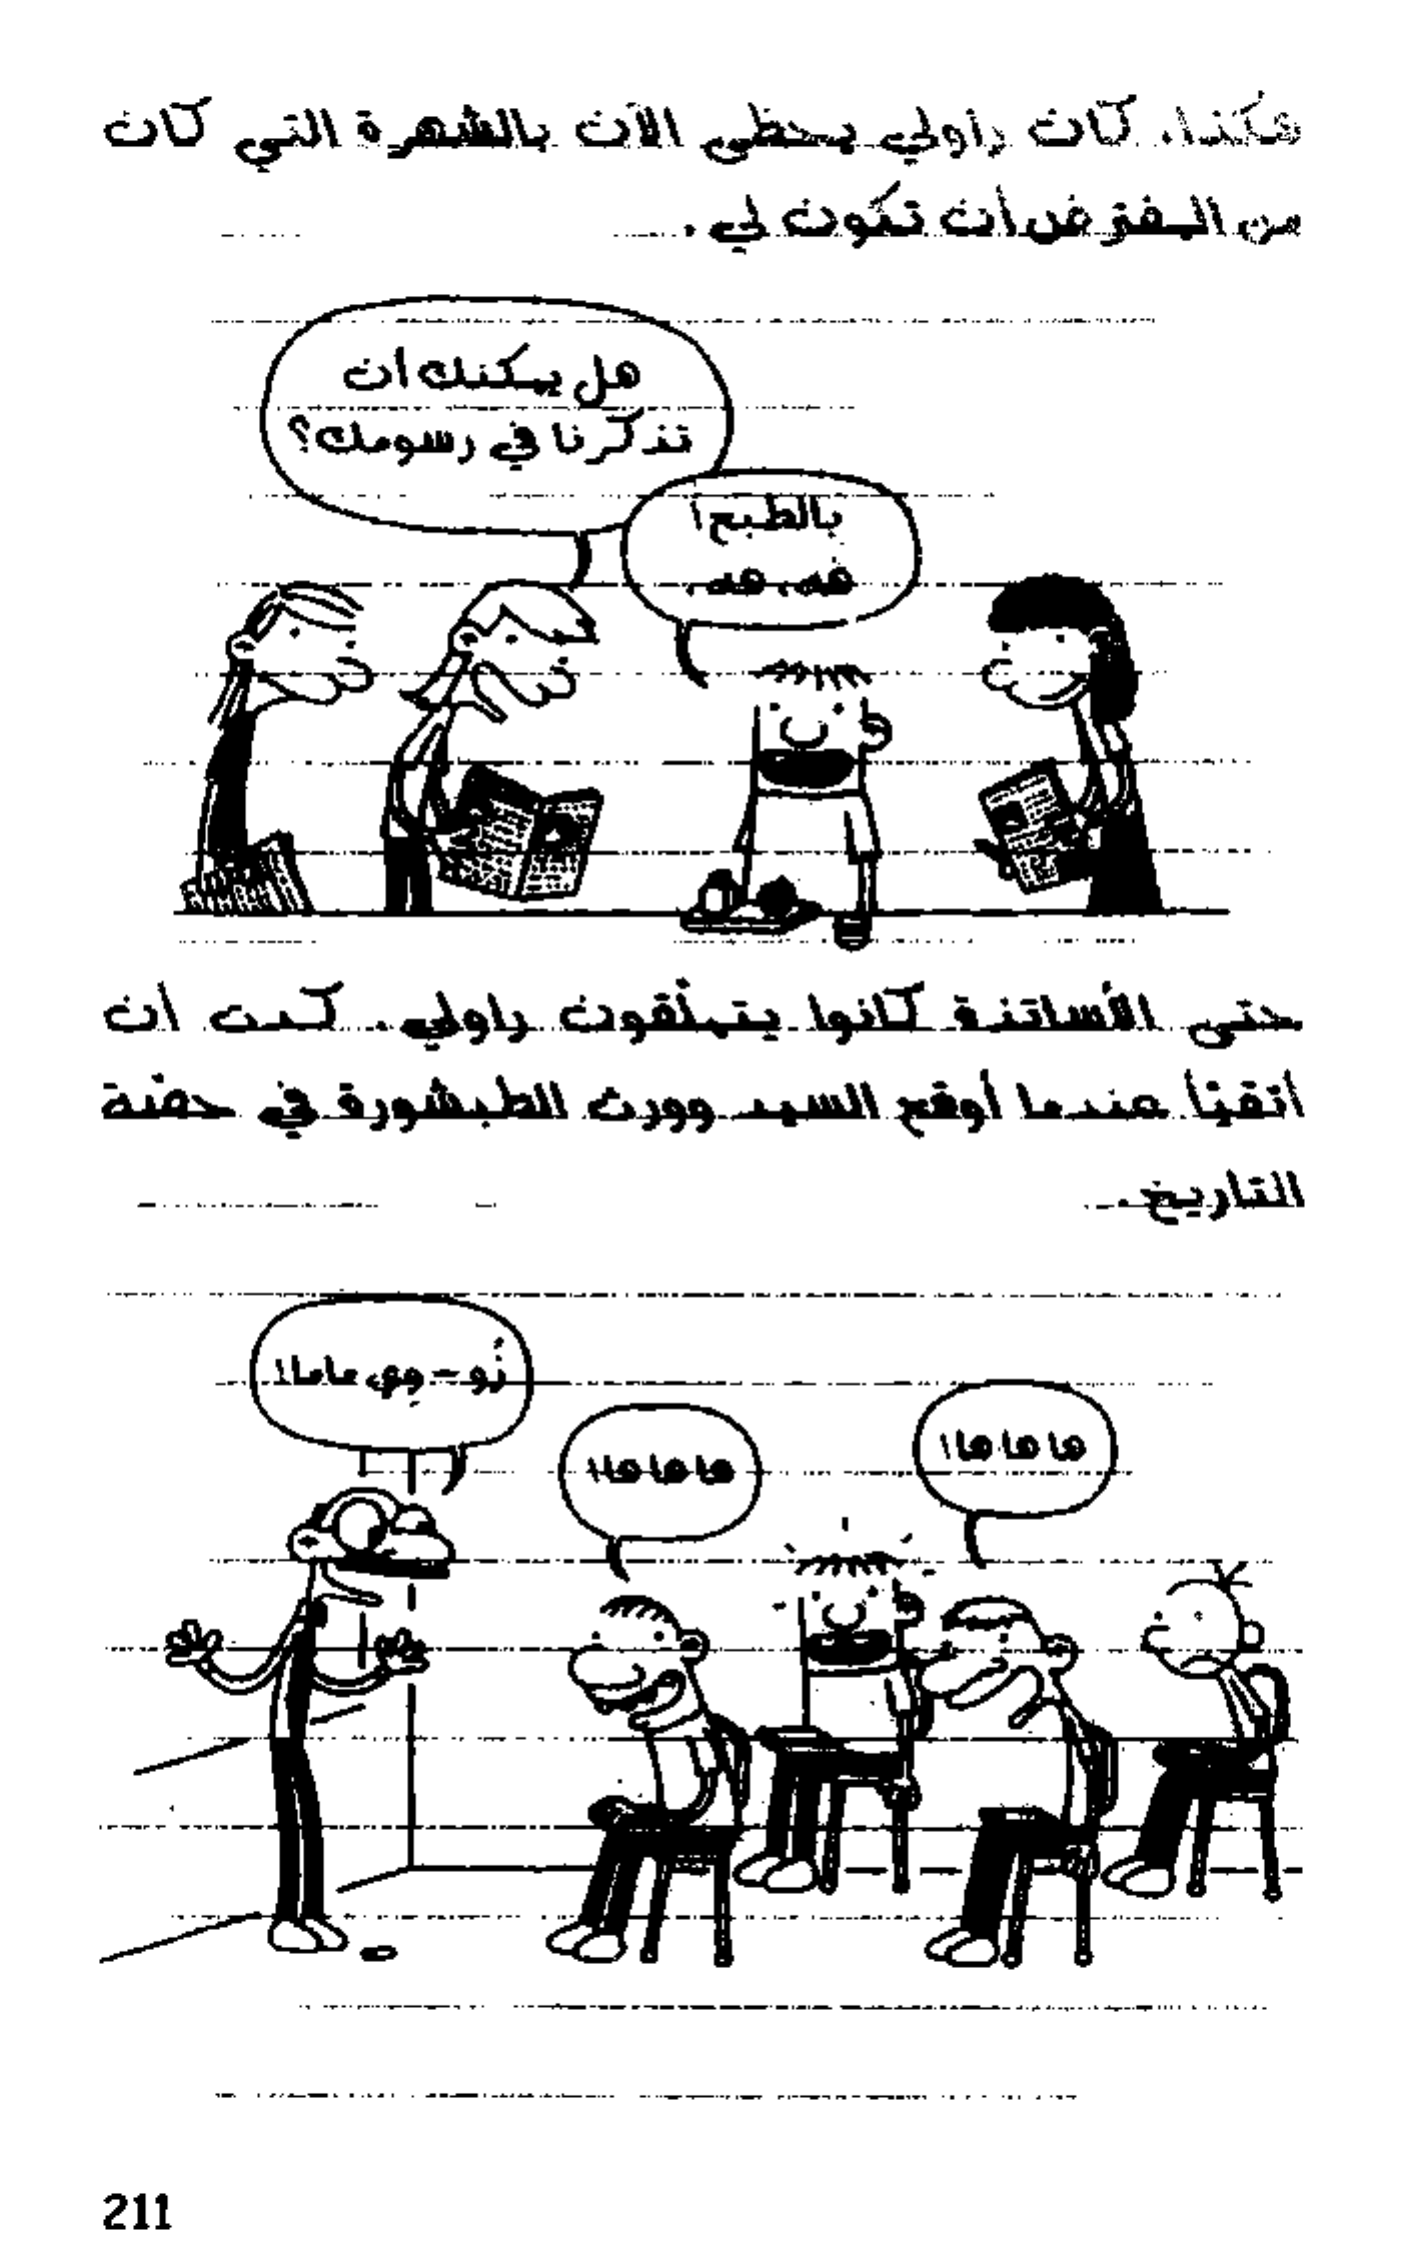 هكذا، كان راولي يحظى الآن بالشهرة التي كان
من المفترض أن تكون لي.
هل يمكنك أن
تذكرنا في رسومك؟
بالطبع!
هه، هه.
حتى الأساتذة كانوا يتملّقون راولي. كدت أن
أتقيّأ عندما أوقع السيد وورث الطبشورة في حصّة
التاريخ.
زُو - وِي ماما!
ها ها ها!
ها ها ها!
211